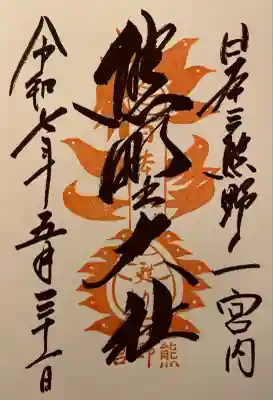 日本三熊野ノ一宮内
熊野大社
令和七年五月三十一日
熊